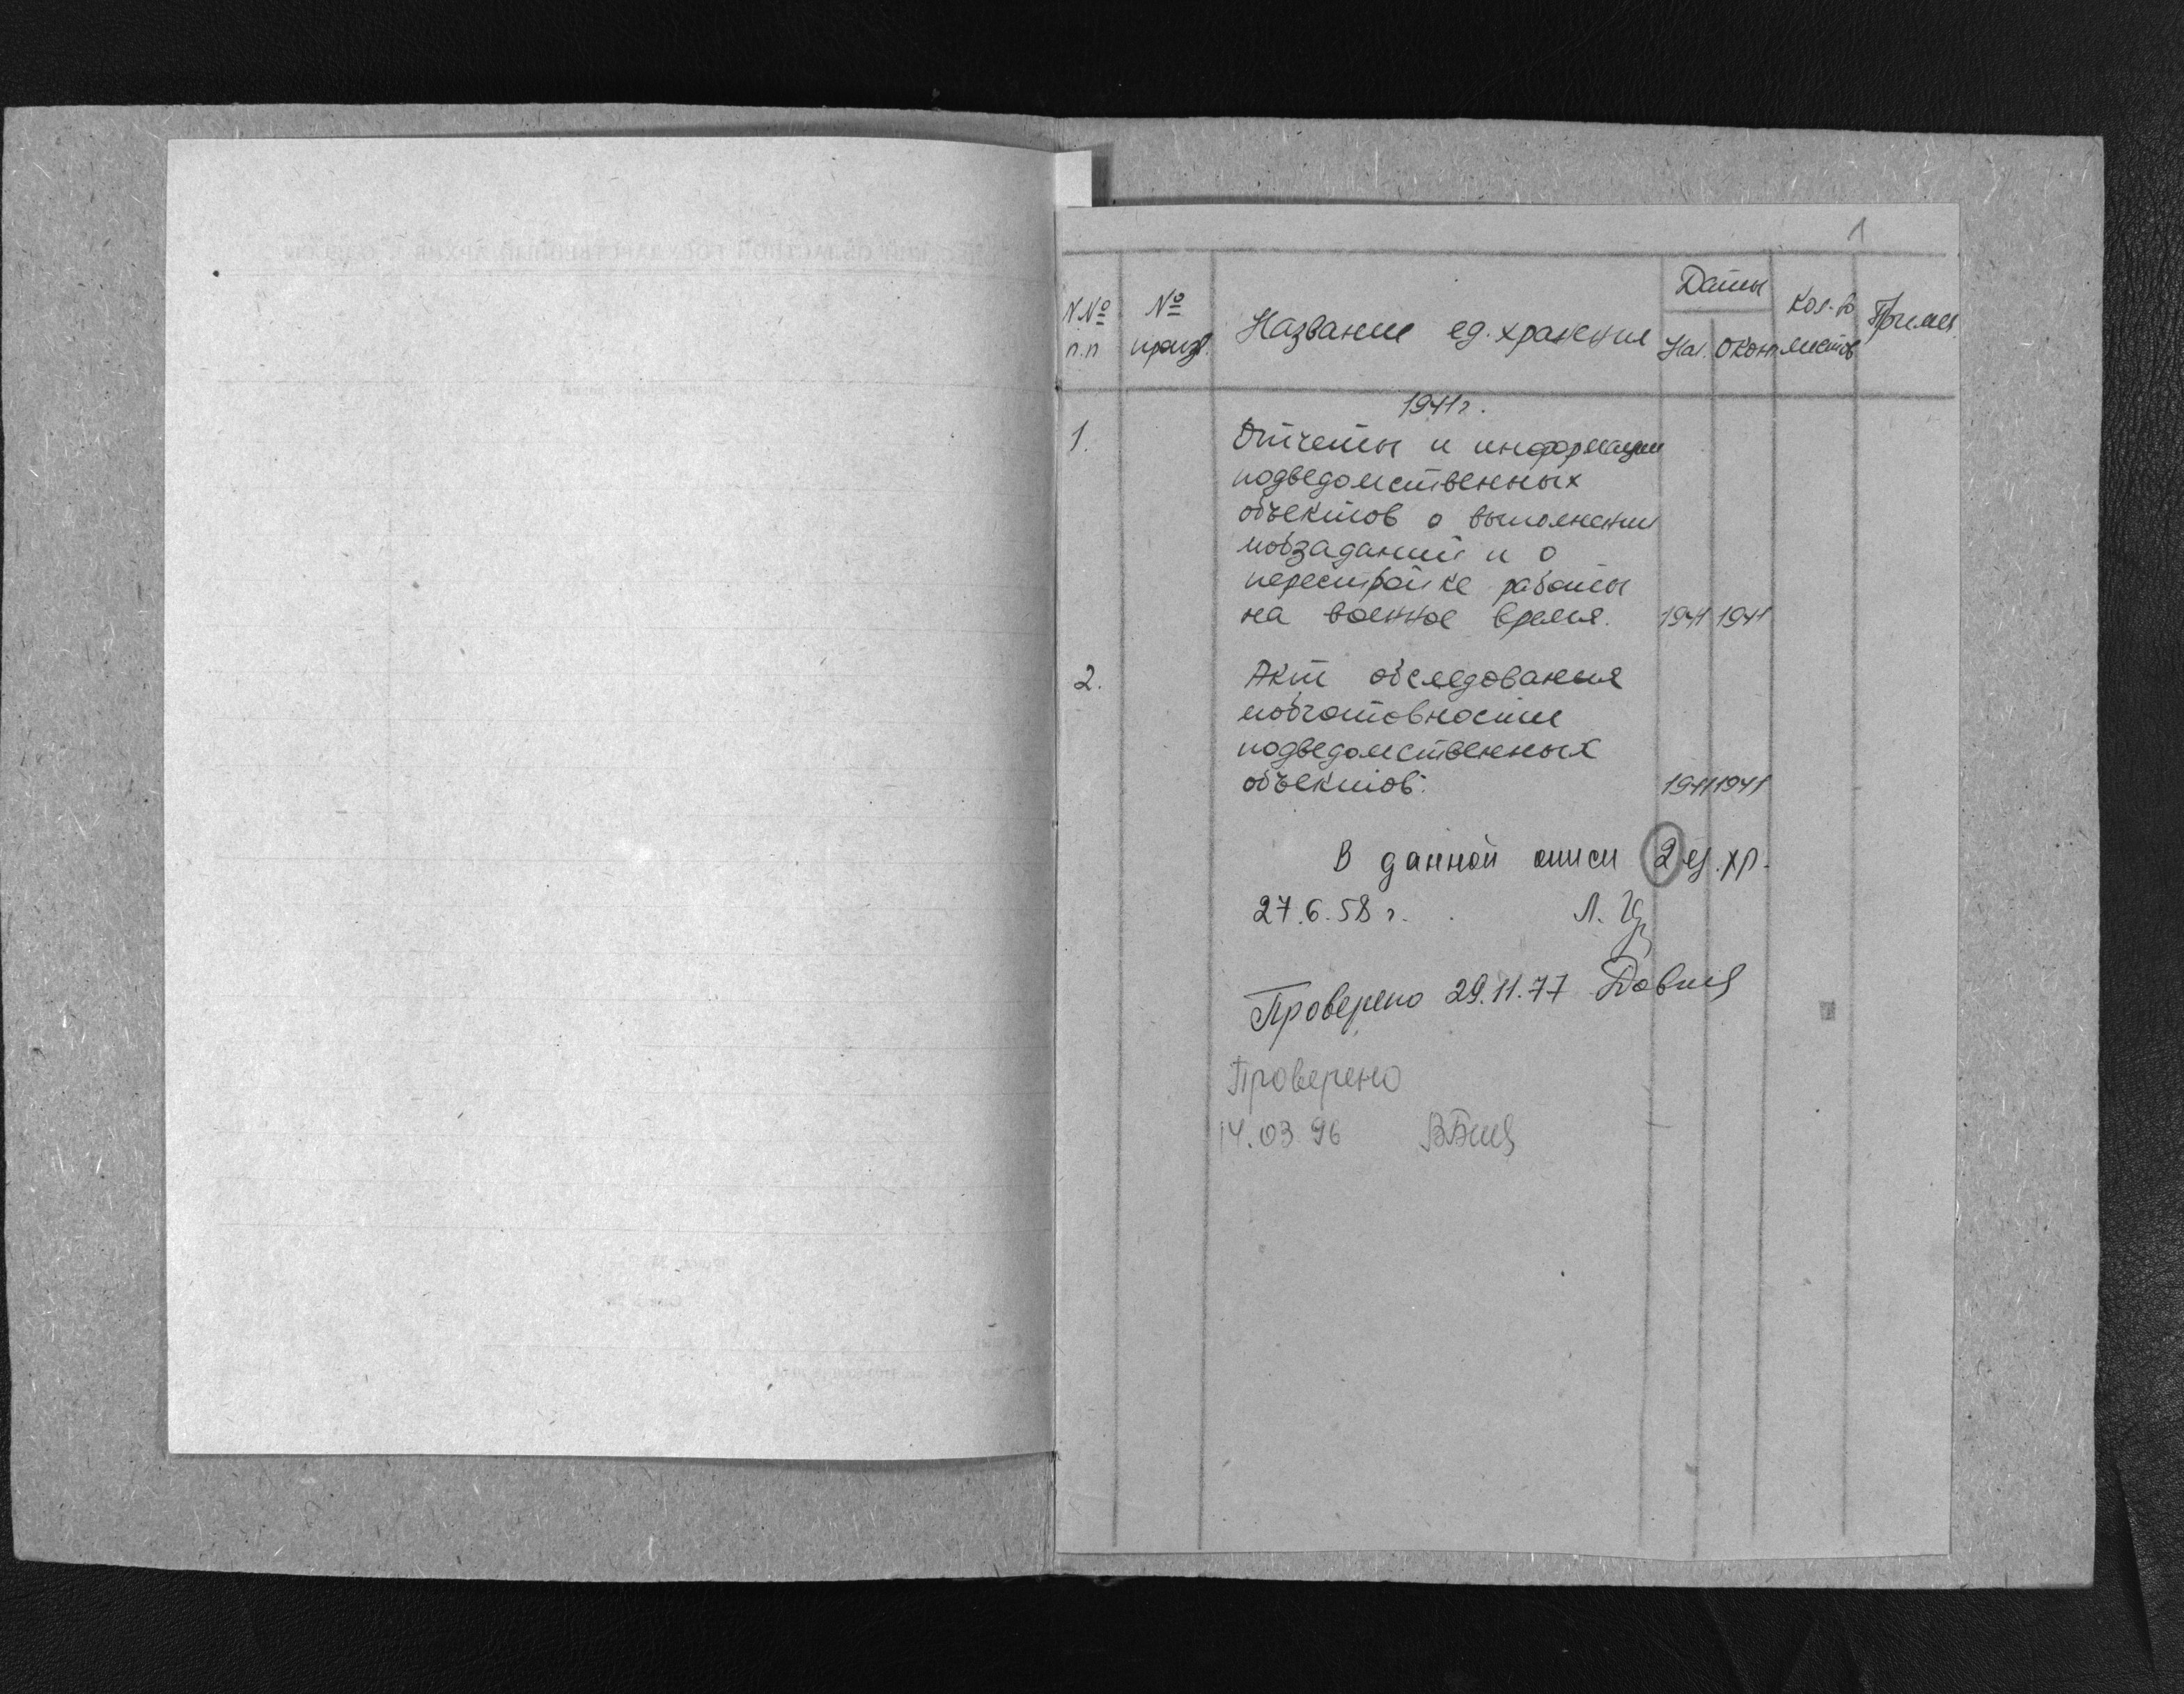 1
N.№ п.п
№ произв.
Название ед. хранения
Даты
Нач.
Оконч.
Кол-во листов
Примеч.
1941 г.
1.
Отчеты и информации
подведомственных
объектов о выполнении
мобзаданий и о
перестройке работы
на военное время. 1941 1941
2.
Акт обследования
мобготовности
подведомственных
объектов. 1941 1941
В данной описи 2 ед. хр.
27.6.58 г. Л.
Проверено 29.11.77
Проверено
14.03.96